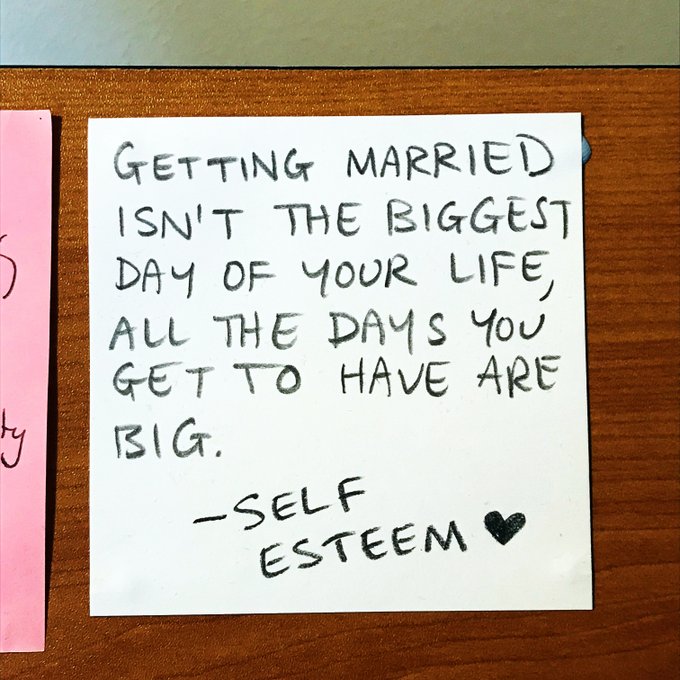 GETTING MARRIED
ISN'T THE BIGGEST
DAY OF YOUR LIFE,
ALL THE DAYS YOU
GET TO HAVE ARE
BIG.
—SELF
ESTEEM ♥